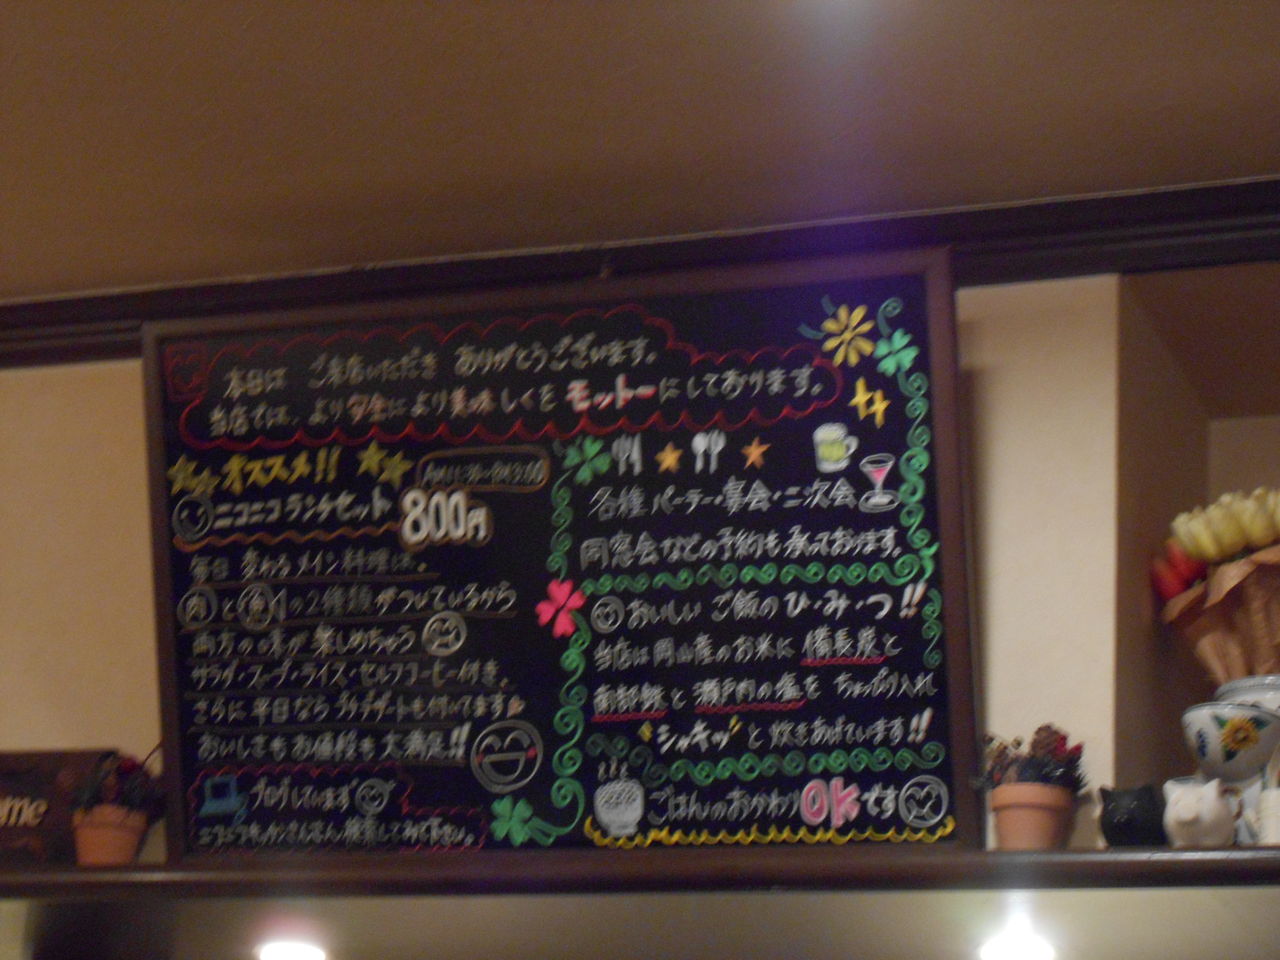 本日は ご来店いただき ありがとうございます。
当店では、より安全により美味しくを モットーにしております。
オススメ!!
ニコニコランチセット 800円
毎日 変わるメイン料理は、
肉と魚の2種類がついているから
両方の味が楽しめちゃう
サラダ・スープ・ライス・セルフコーヒー付き。
さらに平日なら プチデザートも付いてます
おいしさもお値段も大満足!!
ブログしています
検索してみて下さい。
各種パーテー・宴会・二次会
同窓会などの予約も承っております。
おいしい ご飯の ひ・み・つ!!
当店は岡山産のお米に 備長炭と
南部鉄と 瀬戸内の塩を ちゃっぷり入れ
"シャキッ"と炊きあげています!!
ごはんのおかわりOKです
ome